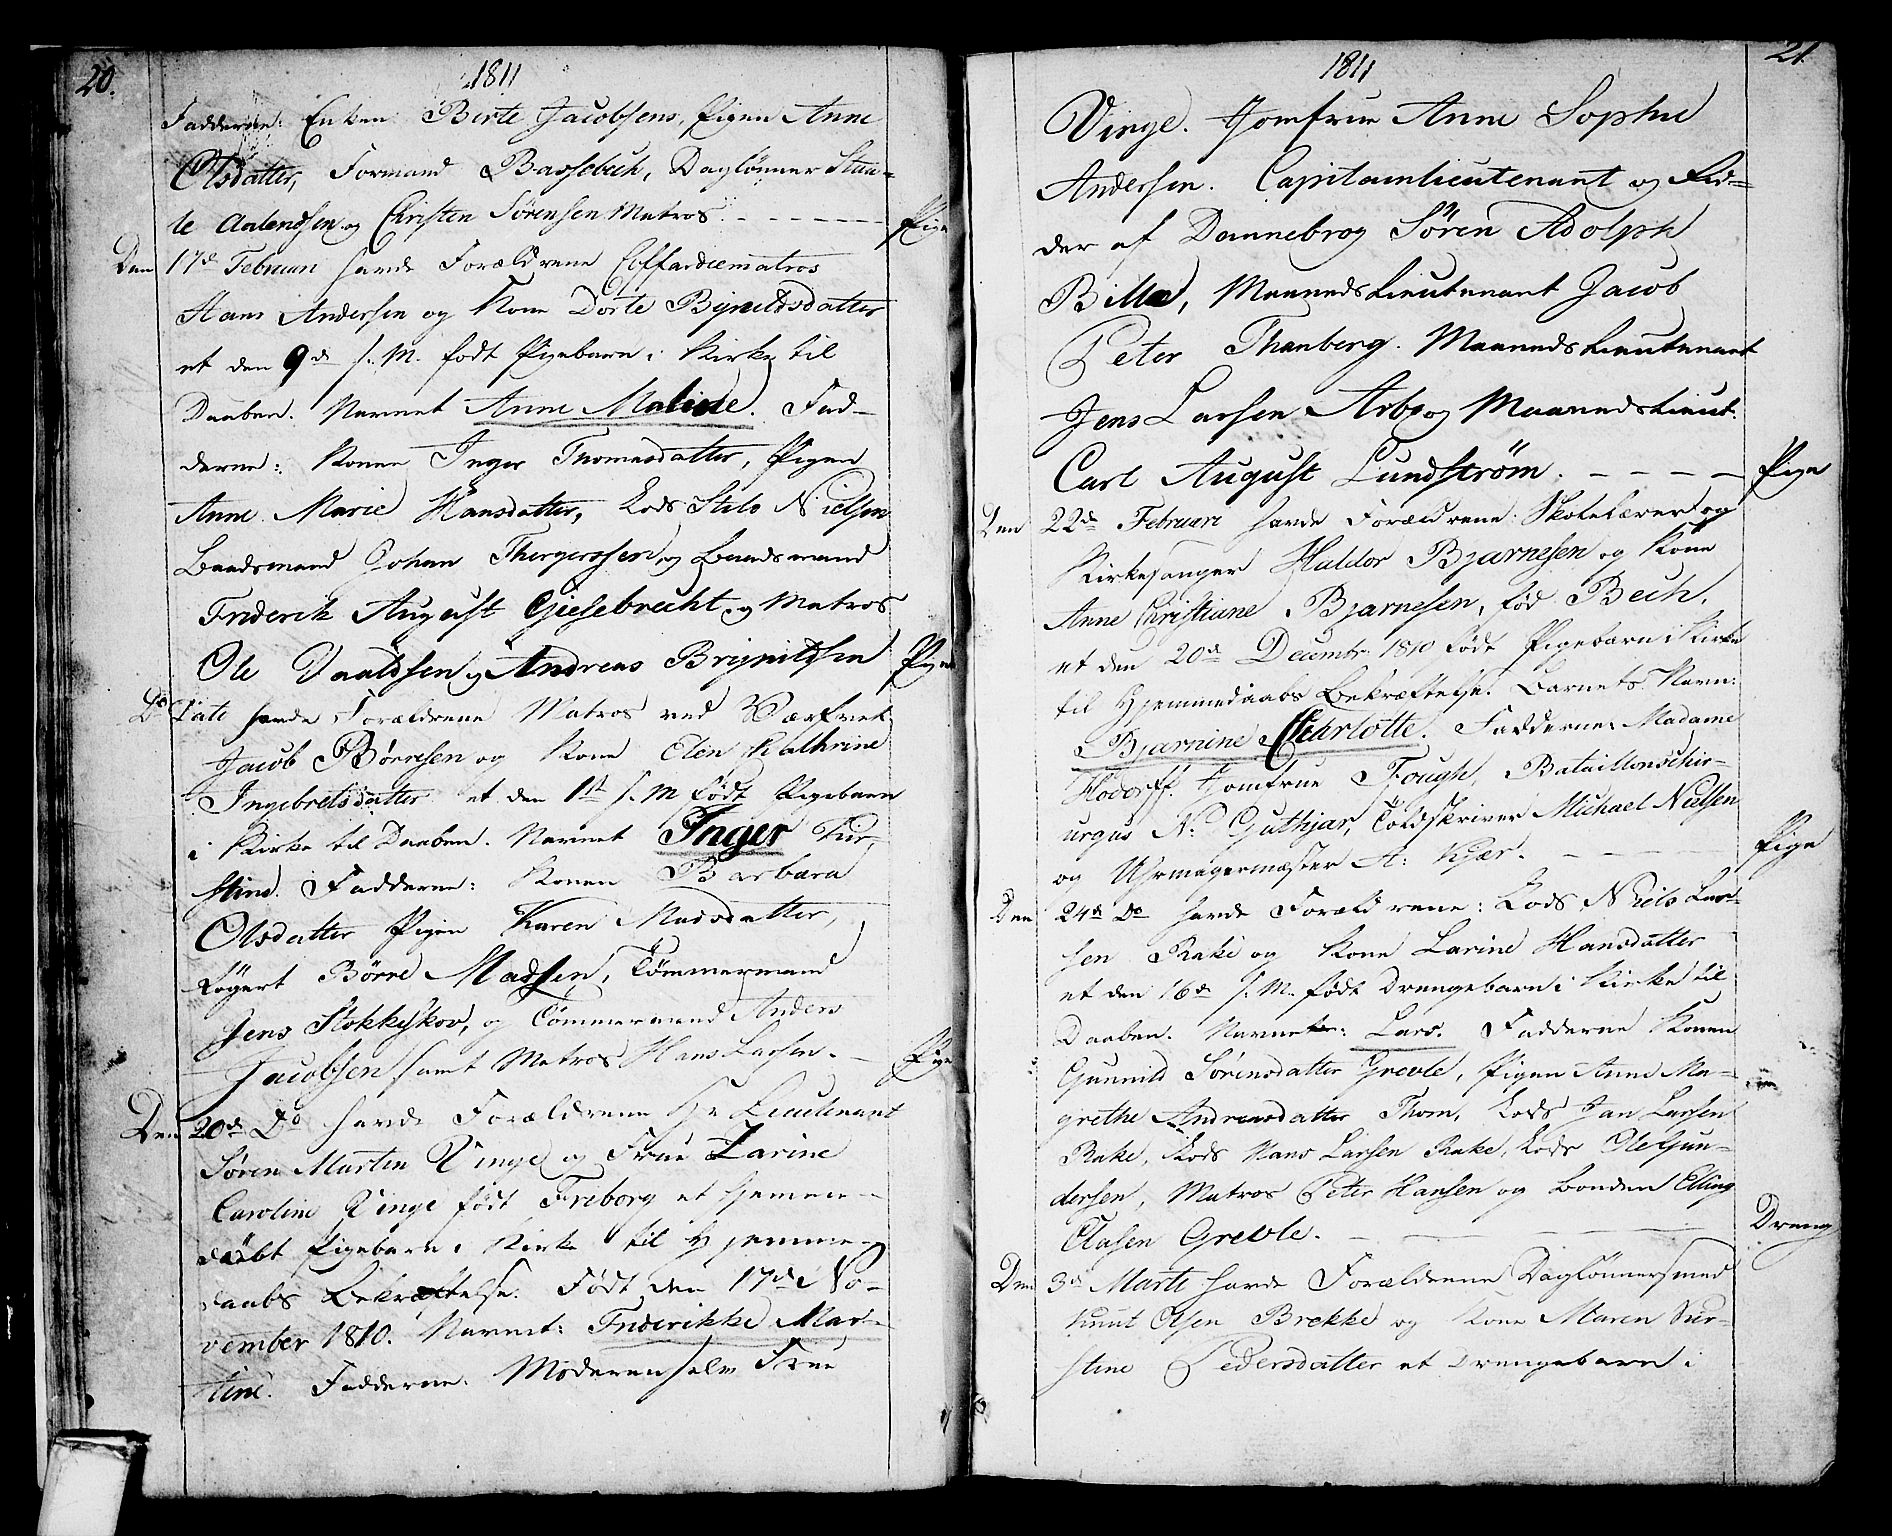 20.
1811
Fadderne: Enken Birte Jacobsens, Pigen Anne
Olsdatter, Formand Bassebech, Daglønner
og Christen Sørensen Matros. Pige
Den 17de Februari havde Forældrene Coffardiematros
Hans Andersen og Kone Dorte
et den 9de s. M. født Pigebarn i Kirke til
Daaben. Navnet Anne Malene. Fad-
derne: Konen Inger Thomesdatter, Pigen
Anne Marie Hansdatter, Lods Nielsen
Baadsmand Johan og Baadsmand
Friderik August Giesebrecht og Matros
Ole og Andreas Pige
Do Dato havde Forældrene Matros ved Værfvet
Jacob Børresen og Kone Elen Kathrine
Ingebretsdatter et den 1st s. M født Pigebarn
i Kirke til Daaben. Navnet Inger Kir-
stine. Fadderne: Konen Barbara
Olsdatter Pigen Karen Madsdatter,
Løgert Børre Madsen, Tømmermand
Jens Stokkeskov, og Tømmermand Anders
Jacobsen samt Matros Hans Larsen. Pige
Den 20de Do havde Forældrene Hr Lieutenant
Søren Martin Vinge og Frue Larine
Caroline Vinge født Friborg et hjemme-
døbt Pigebarn i Kirke til Hjemme-
daabs Bekræftelse. Født den 17de No-
vember 1810. Navnet: Friderikke Mar-
tine. Fadderne: Moderen selv Frue
21
1811
Vinge. Jomfrue Anne Sophie
Andersen. Capitainlieutenant og Rid-
der af Dannebrog Søren Adolph
Bille, Maaneds Lieutenant Jacob
Peter Thanberg. Maaneds Lieutenant
Jens Larsen Arbo og Maaneds Lieut.
Carl August Lundstrøm. Pige
Den 22de Februari havde Forældrene: Skolelærer og
Kirkesanger Haldor Bjarnesen og Kone
Anne Christiane Bjarnesen, fød Bech,
et den 20de Decembr. 1810 født Pigebarn i Kirke
til Hjemmedaabs Bekræftelse. Barnets Navn:
Bjarnine Charlotte. Fadderne: Madame
Hodorff. Jomfrue Fough, Bataillonschir-
urgus N. Guthjar, Toldskriver Michael Nielsen
og Uhrmagermæster A: Kjær. Pige
Den 24de Do havde Forældrene: Lods Niels Lar-
sen Rake og Kone Larine Hansdatter
et den 16de s. M. født Drengebarn i Kirke til
Daaben. Navnet: Lars. Fadderne Konen
Gunnild Sørensdatter Grevle, Pigen Anne Ma-
grethe Andreasdatter Thom, Lods Jan Larsen
Rake, Lods Hans Larsen Rake, Lods Ole Gun-
dersen, Matros Peter Hansen og Bonden Elling
Olasen Grevle. Dreng
Den 3de Marti havde Forældrene Daglønnersmed
Knut Olsen Brekke og Kone Maren Kir-
stine Pedersdatter et Drengebarn i